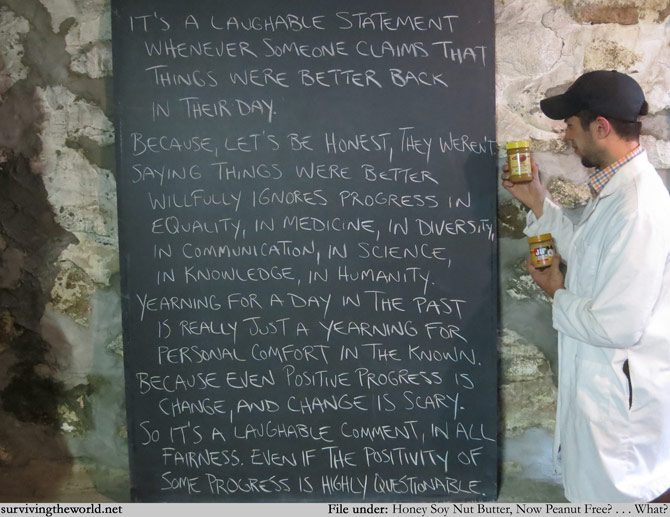 IT'S A LAUGHABLE STATEMENT
WHENEVER SOMEONE CLAIMS THAT
THINGS WERE BETTER BACK
IN THEIR DAY.
BECAUSE, LET'S BE HONEST, THEY WEREN'T.
SAYING THINGS WERE BETTER
WILLFULLY IGNORES PROGRESS IN
EQUALITY, IN MEDICINE, IN DIVERSITY,
IN COMMUNICATION, IN SCIENCE,
IN KNOWLEDGE, IN HUMANITY.
YEARNING FOR A DAY IN THE PAST
IS REALLY JUST A YEARNING FOR
PERSONAL COMFORT IN THE KNOWN.
BECAUSE EVEN POSITIVE PROGRESS IS
CHANGE, AND CHANGE IS SCARY.
SO IT'S A LAUGHABLE COMMENT, IN ALL
FAIRNESS. EVEN IF THE POSITIVITY OF
SOME PROGRESS IS HIGHLY QUESTIONABLE.
JIF
survivingtheworld.net
File under: Honey Soy Nut Butter, Now Peanut Free? . . . What?